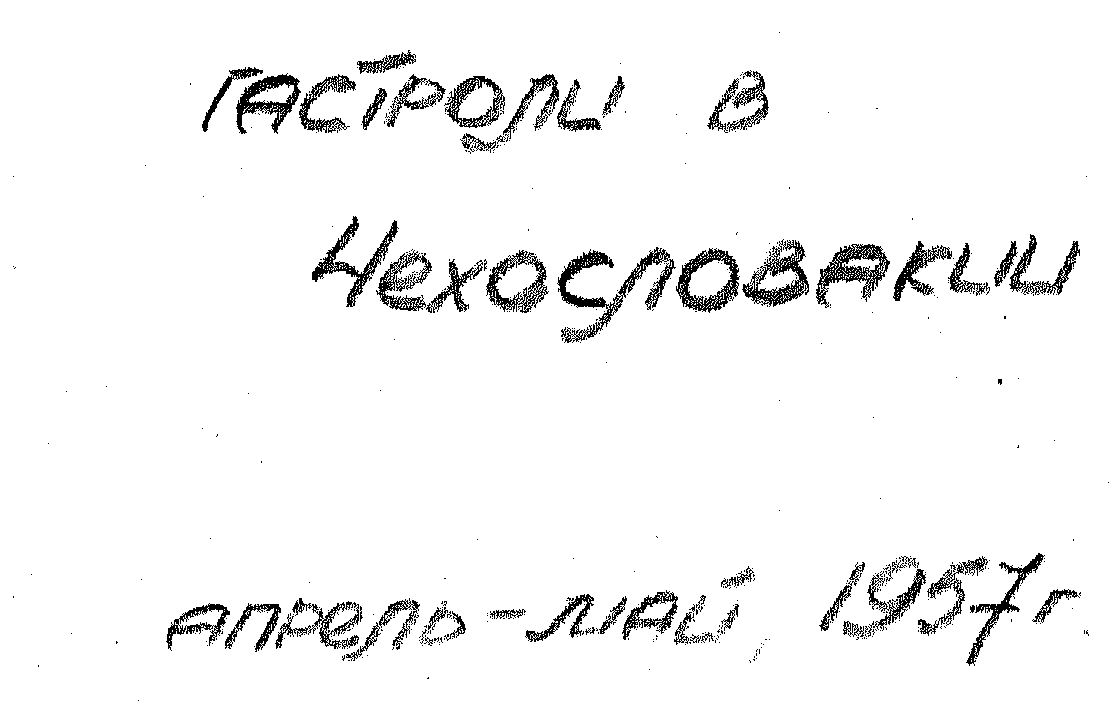 Гастроли в
Чехословакии
апрель - май, 1957 г.